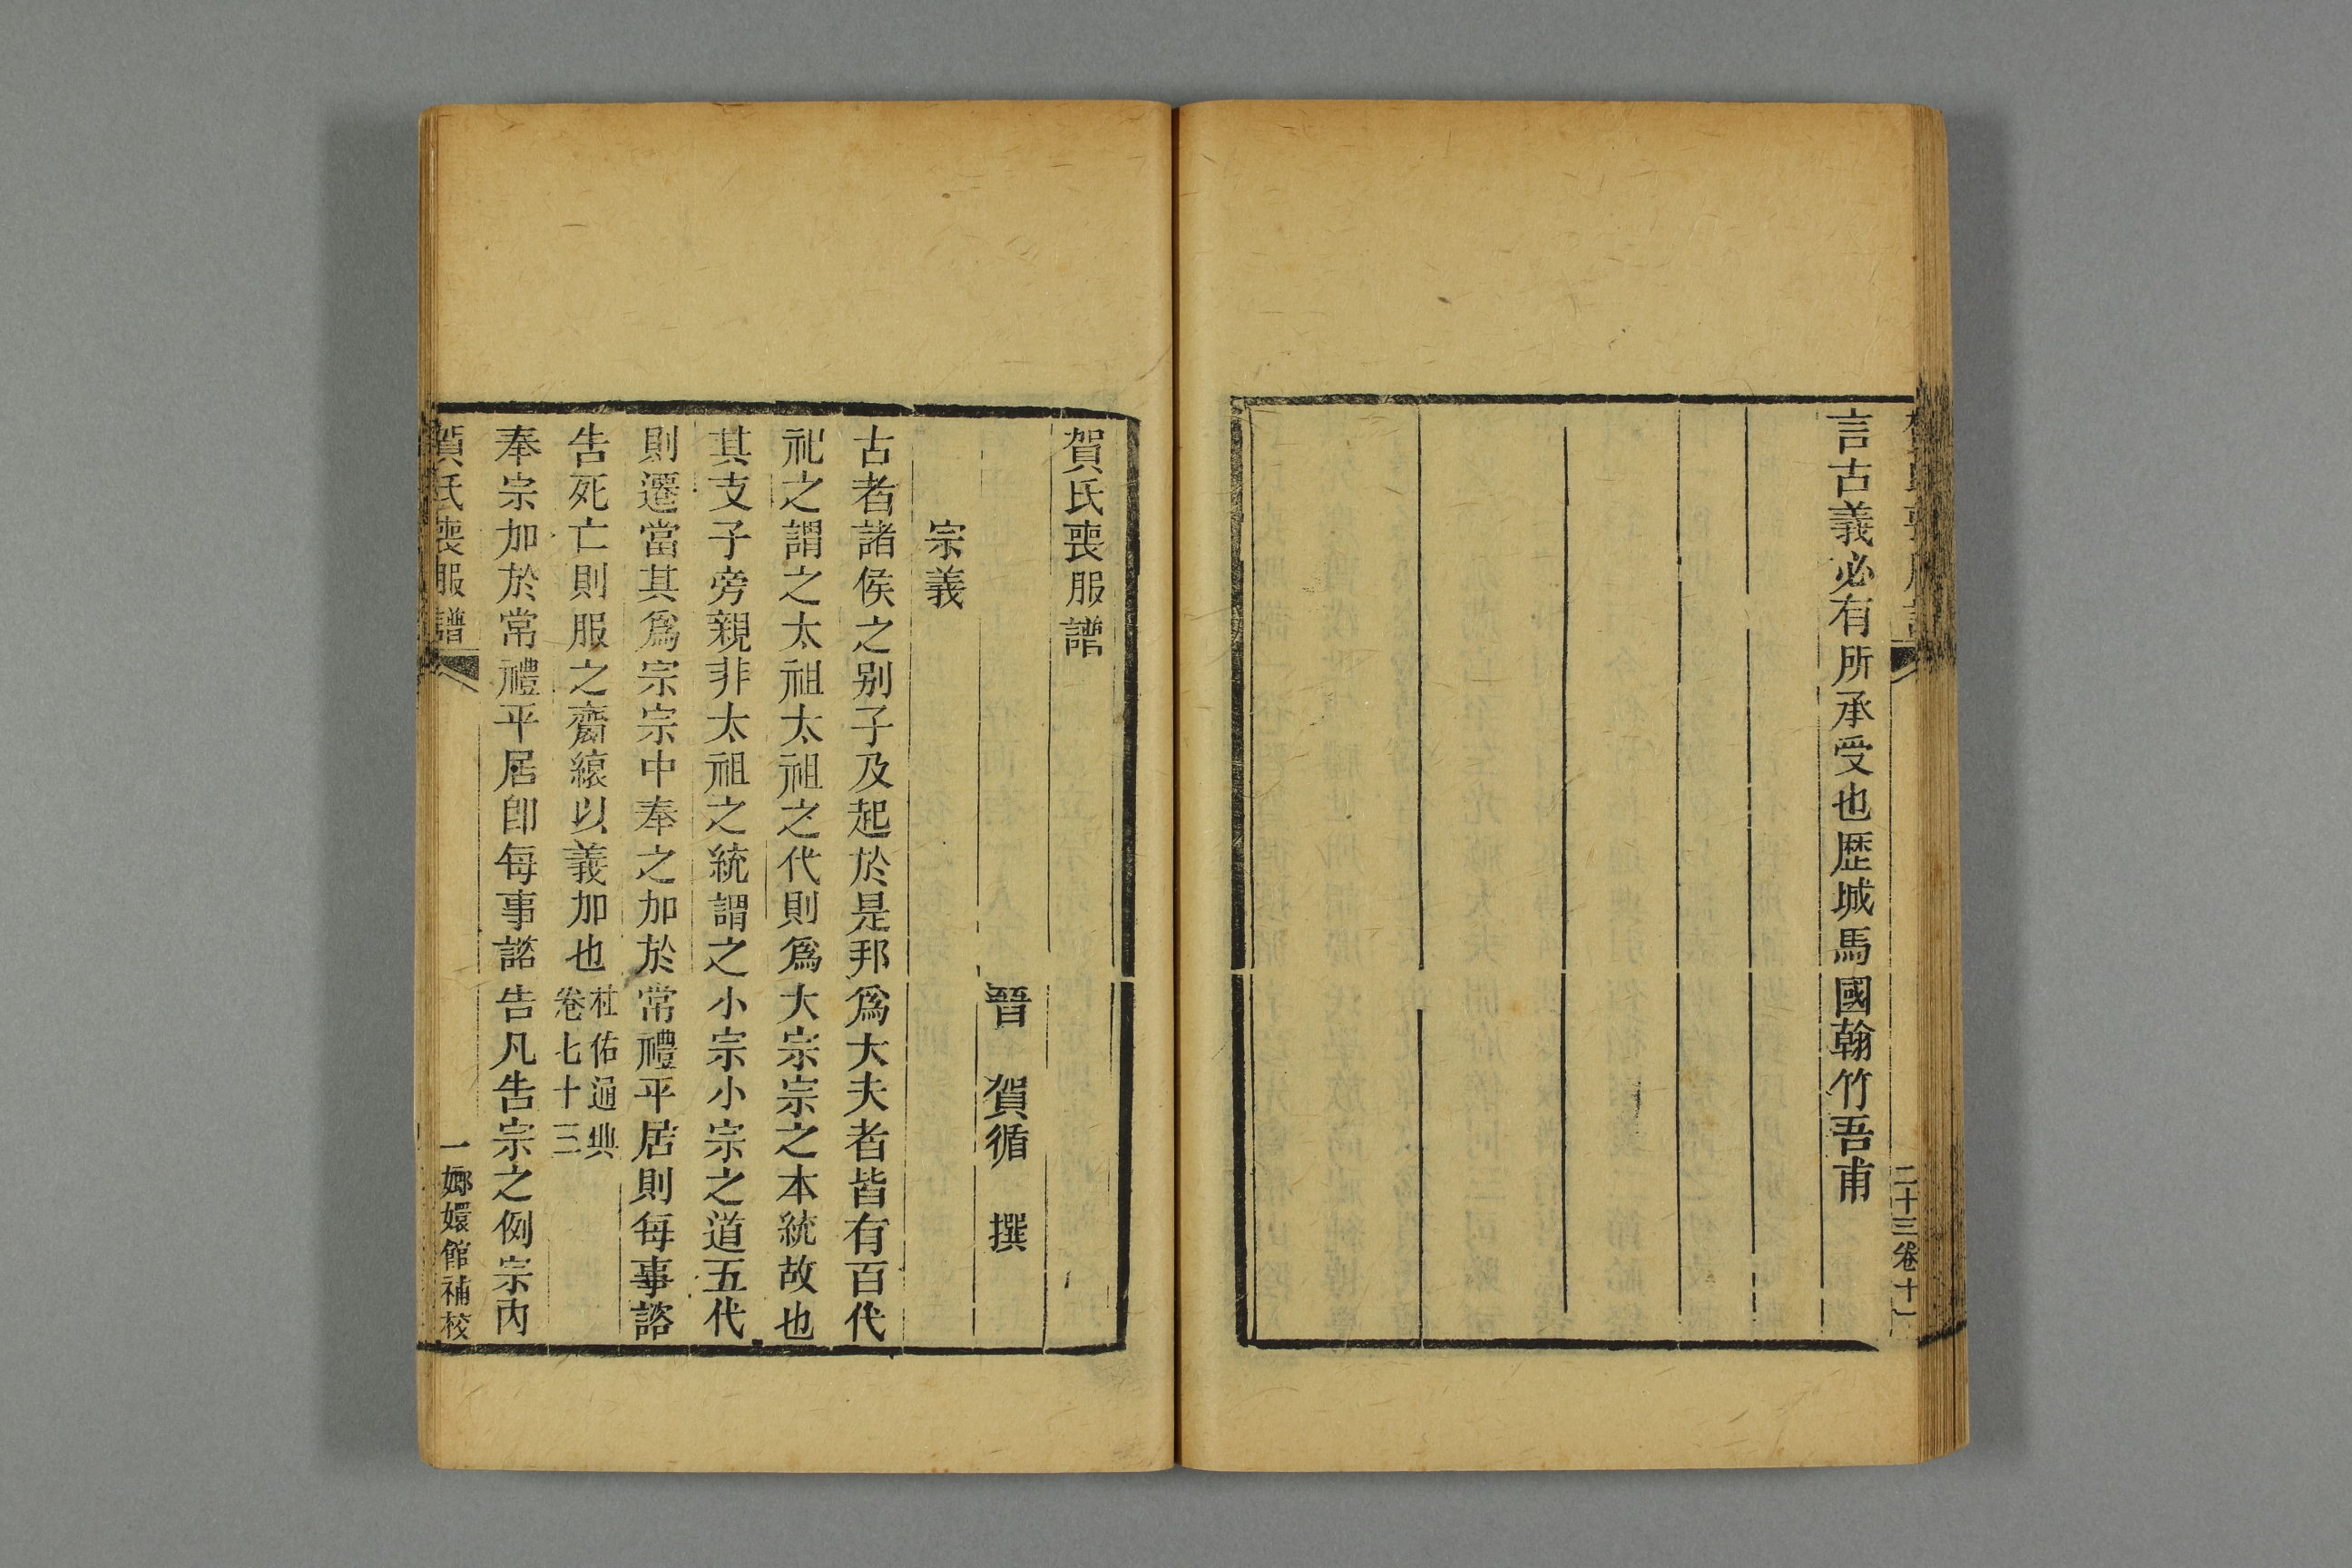 言古義必有所承受也歷城馬國翰竹吾甫
二十三卷十一
賀氏喪服譜
晉 賀循 撰
宗義
古者諸侯之别子及起於是邦爲大夫者皆有百代
祀之謂之太祖太祖之代則爲大宗宗之本統故也
其支子旁親非太祖之統謂之小宗小宗之道五代
則遷當其爲宗宗中奉之加於常禮平居則每事諮
告死亡則服之齊縗以義加也杜佑通典
卷七十三
奉宗加於常禮平居卽每事諮告凡告宗之例宗内
賀氏喪服譜
一嫏嬛館補校